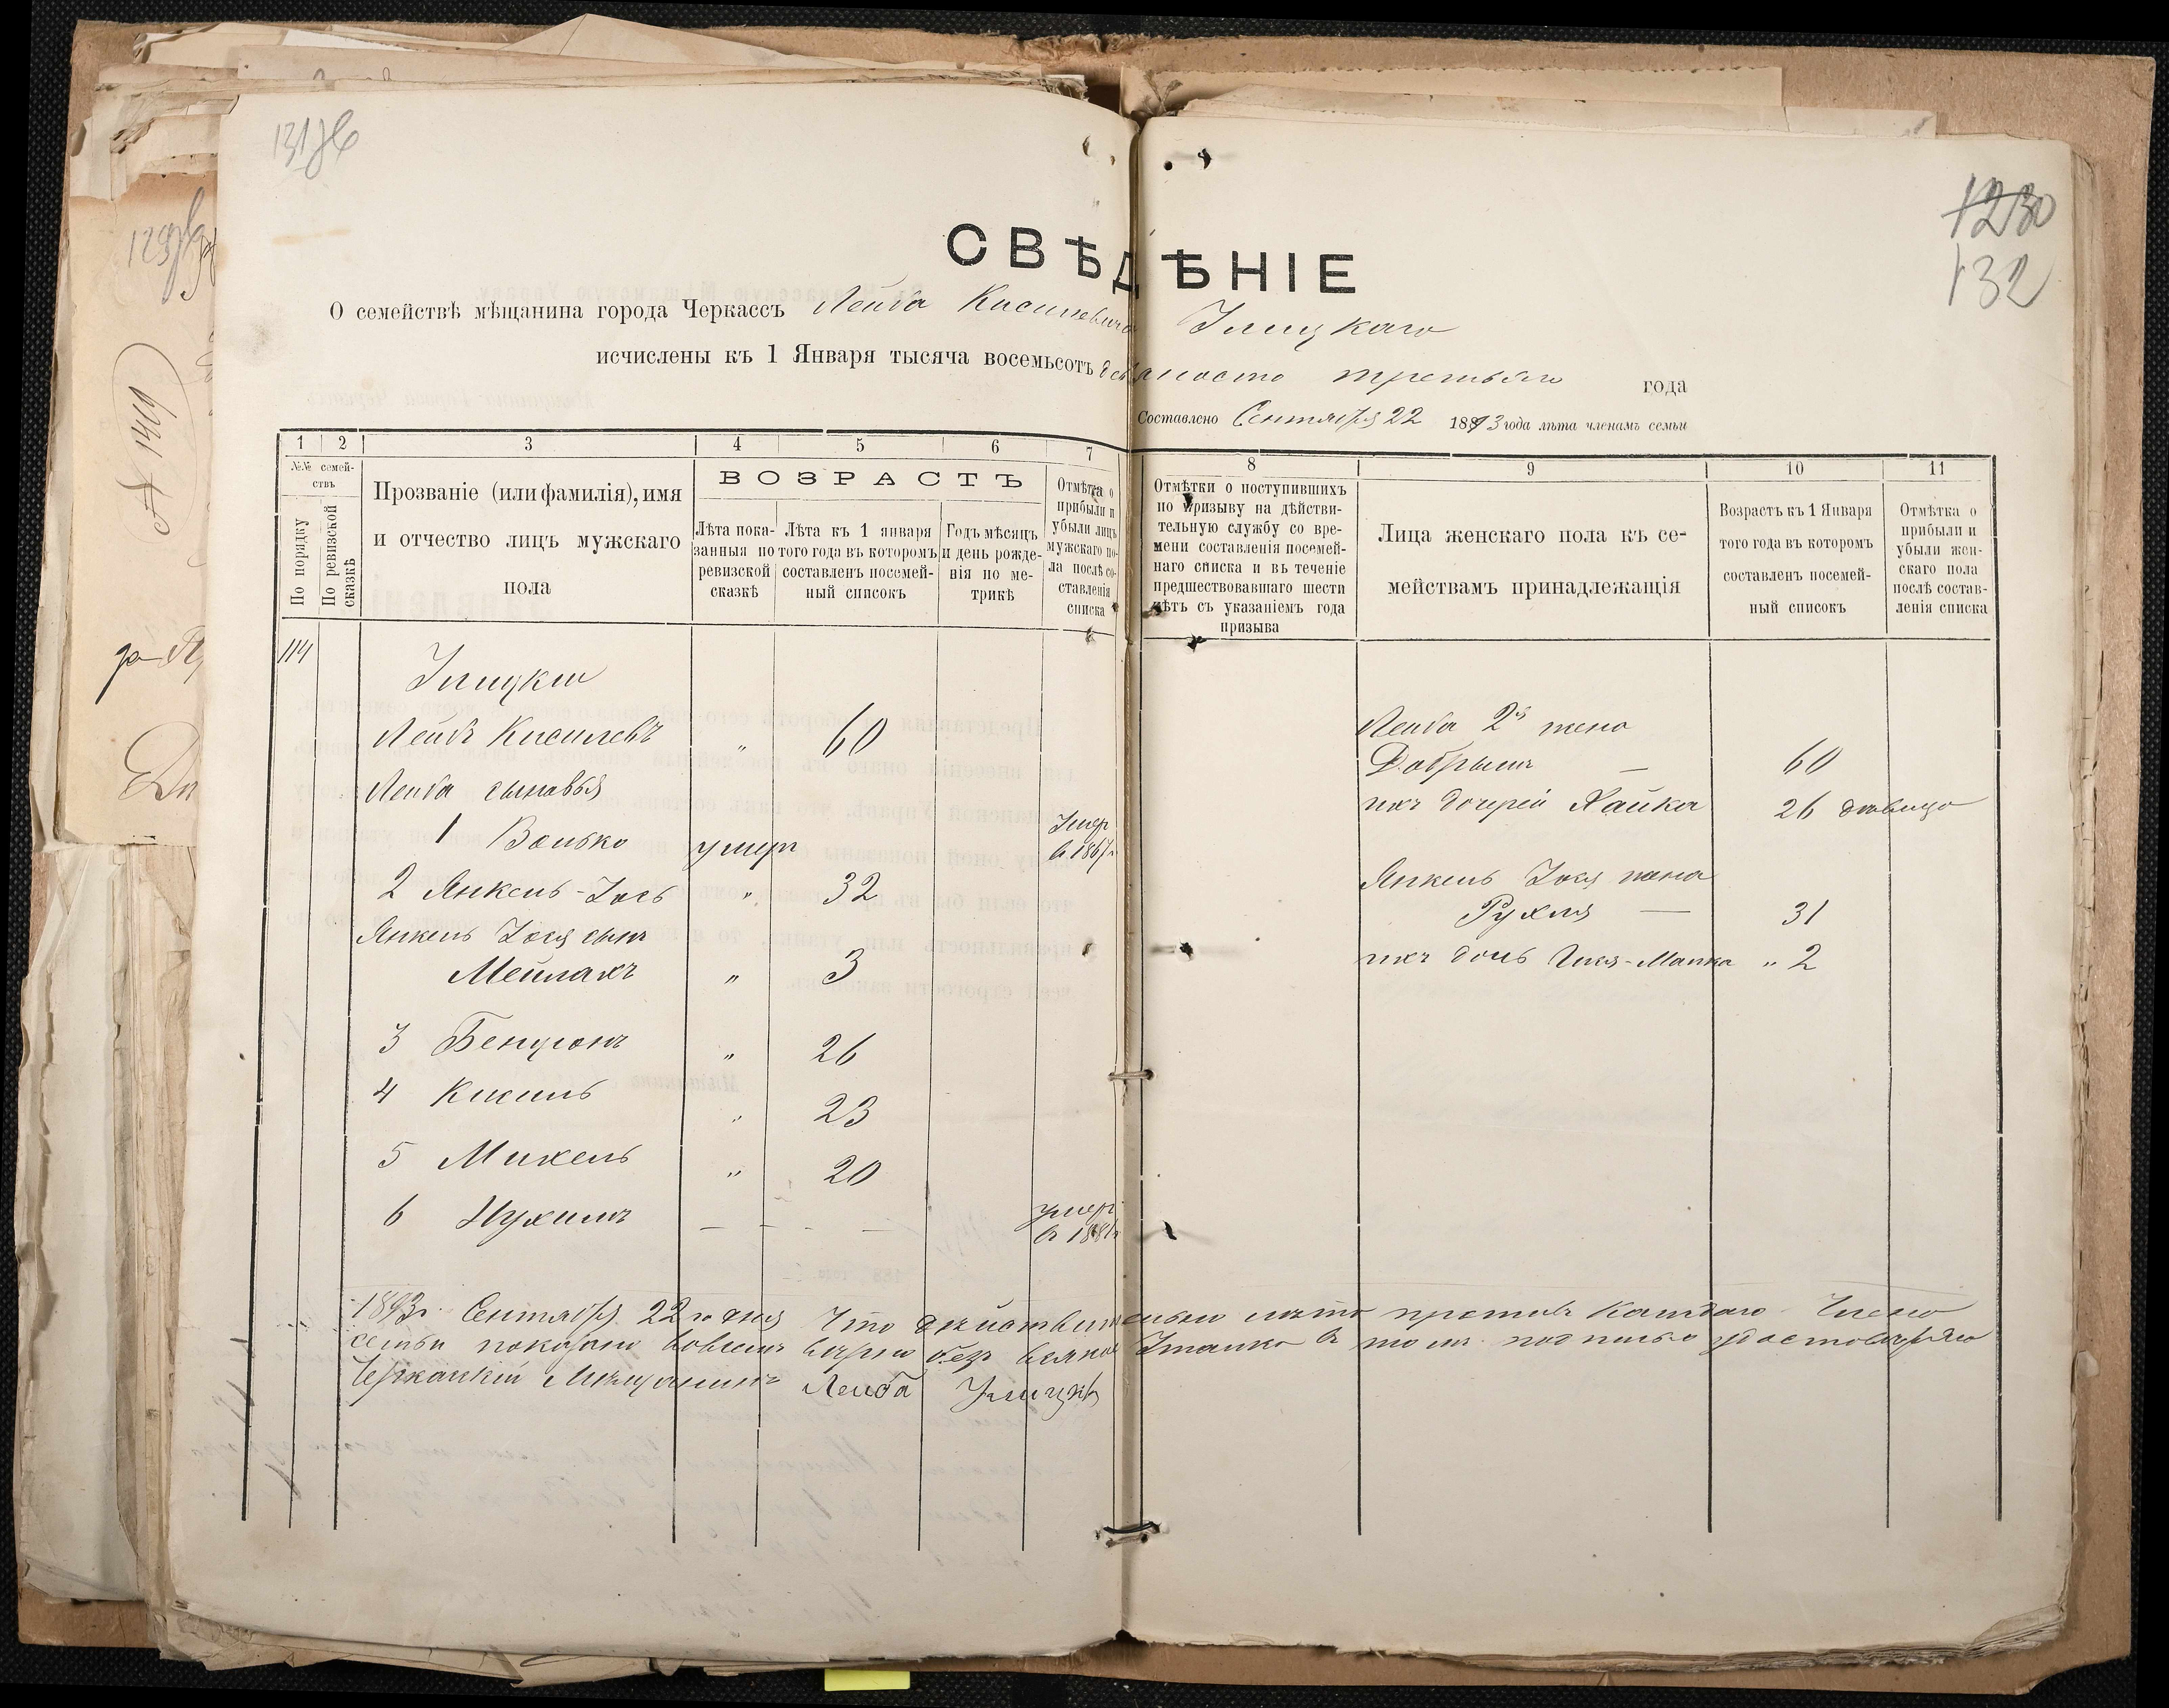 1230
132
СВѢДѢНІЕ
О семействѣ мѣщанина города Черкассъ Лейба Кисилевича Улицкаго
исчислены къ 1 Января тысяча восемьсотъ девяносто третьяго года
Составлено Сентября 22 1893 года лѣта членамъ семьи
1 2 3 4 5 6 7 8 9 10 11
№№ семей-
ствъ
По порядку
По ревизской
сказкѣ
Прозваніе (или фамилія), имя
и отчество лицъ мужскаго
пола
ВОЗРАСТЪ
Лѣта пока-
занныя по
ревизской
сказкѣ
Лѣта къ 1 января
того года въ котором
составленъ посемей-
ный списокъ
Годъ мѣсяцъ
и день рожде-
нія по ме-
трикѣ
Отмѣтка о
прибыли и
убыли лицъ
мужскаго по-
ла послѣ со-
ставленія
списка
Отмѣтки о поступившихъ
по призыву на дѣйстви-
тельную службу со вре-
мени составленія посемей-
наго списка и въ теченіе
предшествовавшаго шести
лѣтъ съ указаніемъ года
призыва
Лица женскаго пола къ се-
мействамъ принадлежащія
Возрастъ къ 1 Января
того года въ котором
составленъ посемей-
ный списокъ
Отмѣтка о
прибыли и
убыли жен-
скаго пола
послѣ состав-
ленія списка
114
Улицкіи
Лейбъ Кисилевъ " 60
Лейба 2я жена
Добрышъ — 60
Лейба сыновья
ихъ дочерей Хайка 26 девица
1 Волько умеръ Умер
в 1867г
2 Янкель-Іось " 32
Янкель Іося жена
Рухля — 31
Янкель Іося сынъ
Мейлахъ " 3
ихъ дочь " 2
3 Бенционъ " 26
4 Кисиль " 23
5 Михель " 20
6 Нухимъ — — — — умер
в 1881г
1893г. Сентября 22го дня Что действительно лета противъ каждаго Число
семьи показано вовсемъ верно безъ всякой Утайки в томъ подписью удостоверяю
Черкаский Мещанинъ Лейба Улицкій